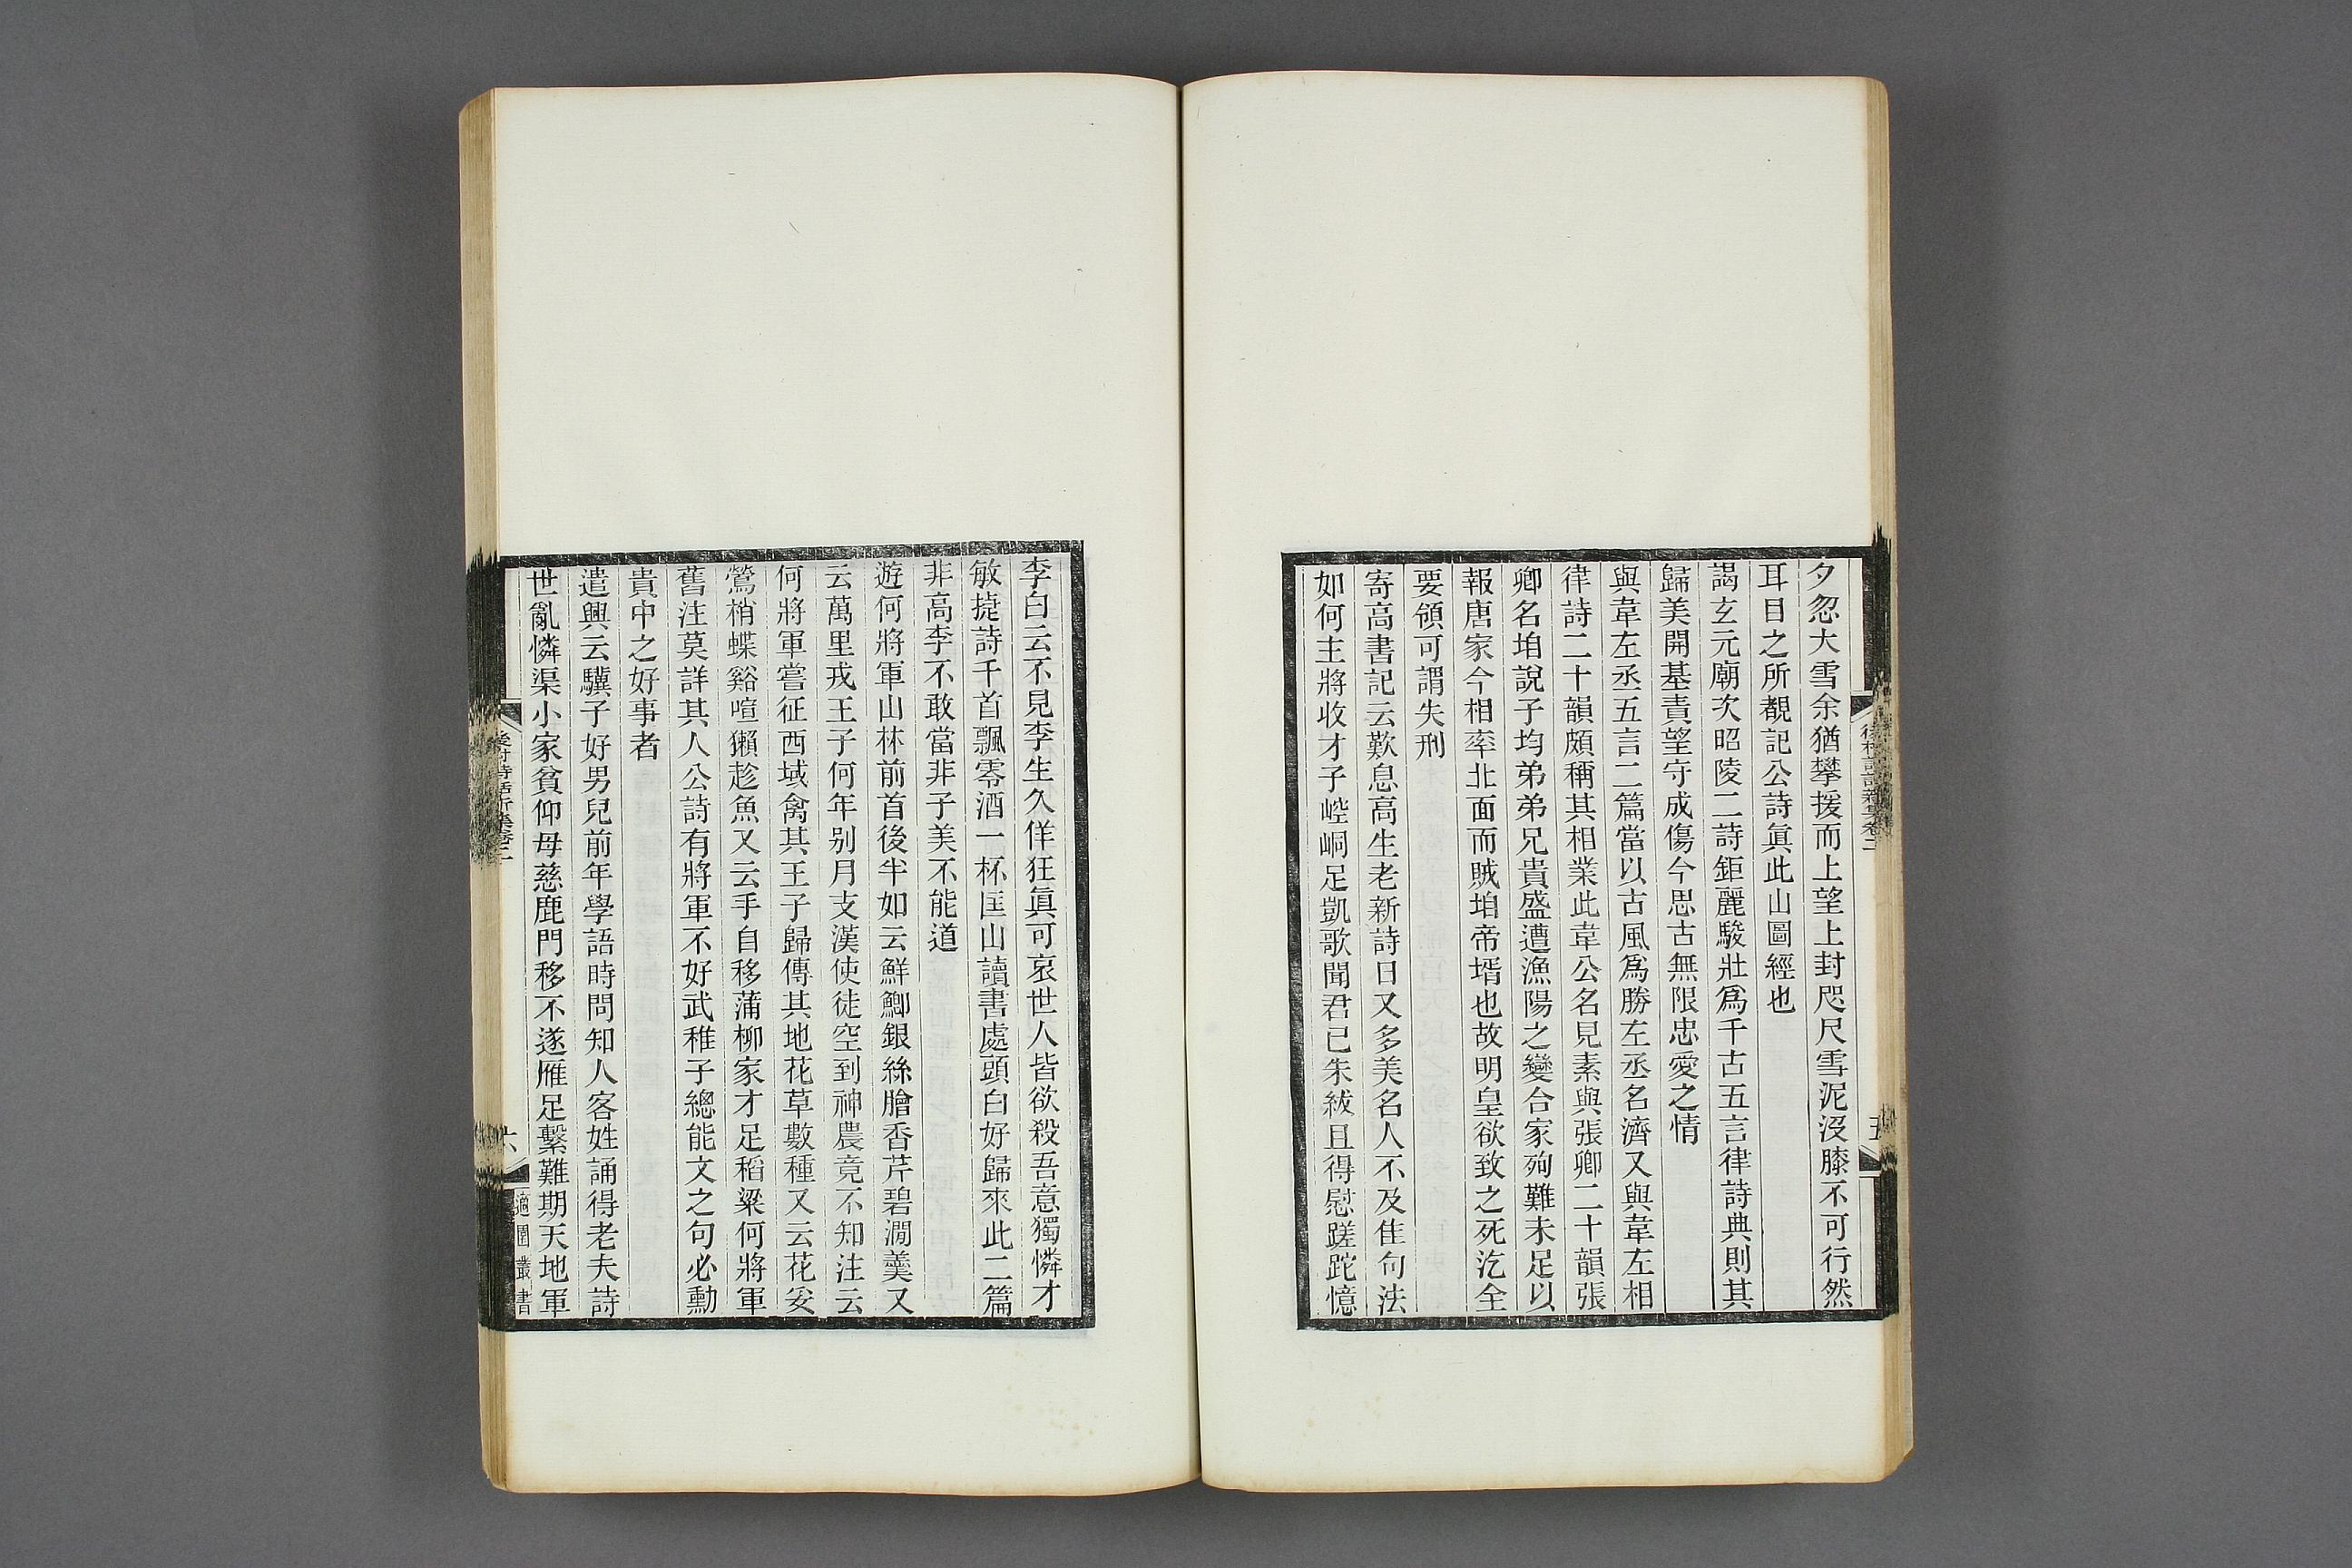 夕忽大雪余猶攀援而上望上封咫尺雪泥沒膝不可行然
耳目之所覩記公詩眞此山圖經也
謁玄元廟次昭陵二詩鉅麗駿壯爲千古五言律詩典則其
歸美開基責望守成傷今思古無限忠愛之情
與韋左丞五言二篇當以古風爲勝左丞名濟又與韋左相
律詩二十韻頗稱其相業此韋公名見素與張卿二十韻張
卿名垍說子均弟弟兄貴盛遭漁陽之變合家殉難未足以
報唐家今相率北面而賊垍帝壻也故明皇欲致之死汔全
要領可謂失刑
寄高書記云歎息高生老新詩日又多美名人不及隹句法
如何主將收才子崆峒足凱歌聞君已朱紱且得慰蹉跎憶
後村詩話新集卷二
五
李白云不見李生久佯狂眞可哀世人皆欲殺吾意獨憐才
敏捷詩千首飄零酒一杯匡山讀書處頭白好歸來此二篇
非高李不敢當非子美不能道
遊何將軍山林前首後半如云鮮鯽銀絲膾香芹碧澗羹又
云萬里戎王子何年别月支漢使徒空到神農竟不知注云
何將軍嘗征西域禽其王子歸傳其地花草數種又云花妥
鶯梢蝶谿喧獺趁魚又云手自移蒲柳家才足稻粱何將軍
舊注莫詳其人公詩有將軍不好武稚子總能文之句必勳
貴中之好事者
遣興云驥子好男兒前年學語時問知人客姓誦得老夫詩
世亂憐渠小家貧仰母慈鹿門移不遂雁足繫難期天地軍
後村詩話新集卷二
六
適園叢書